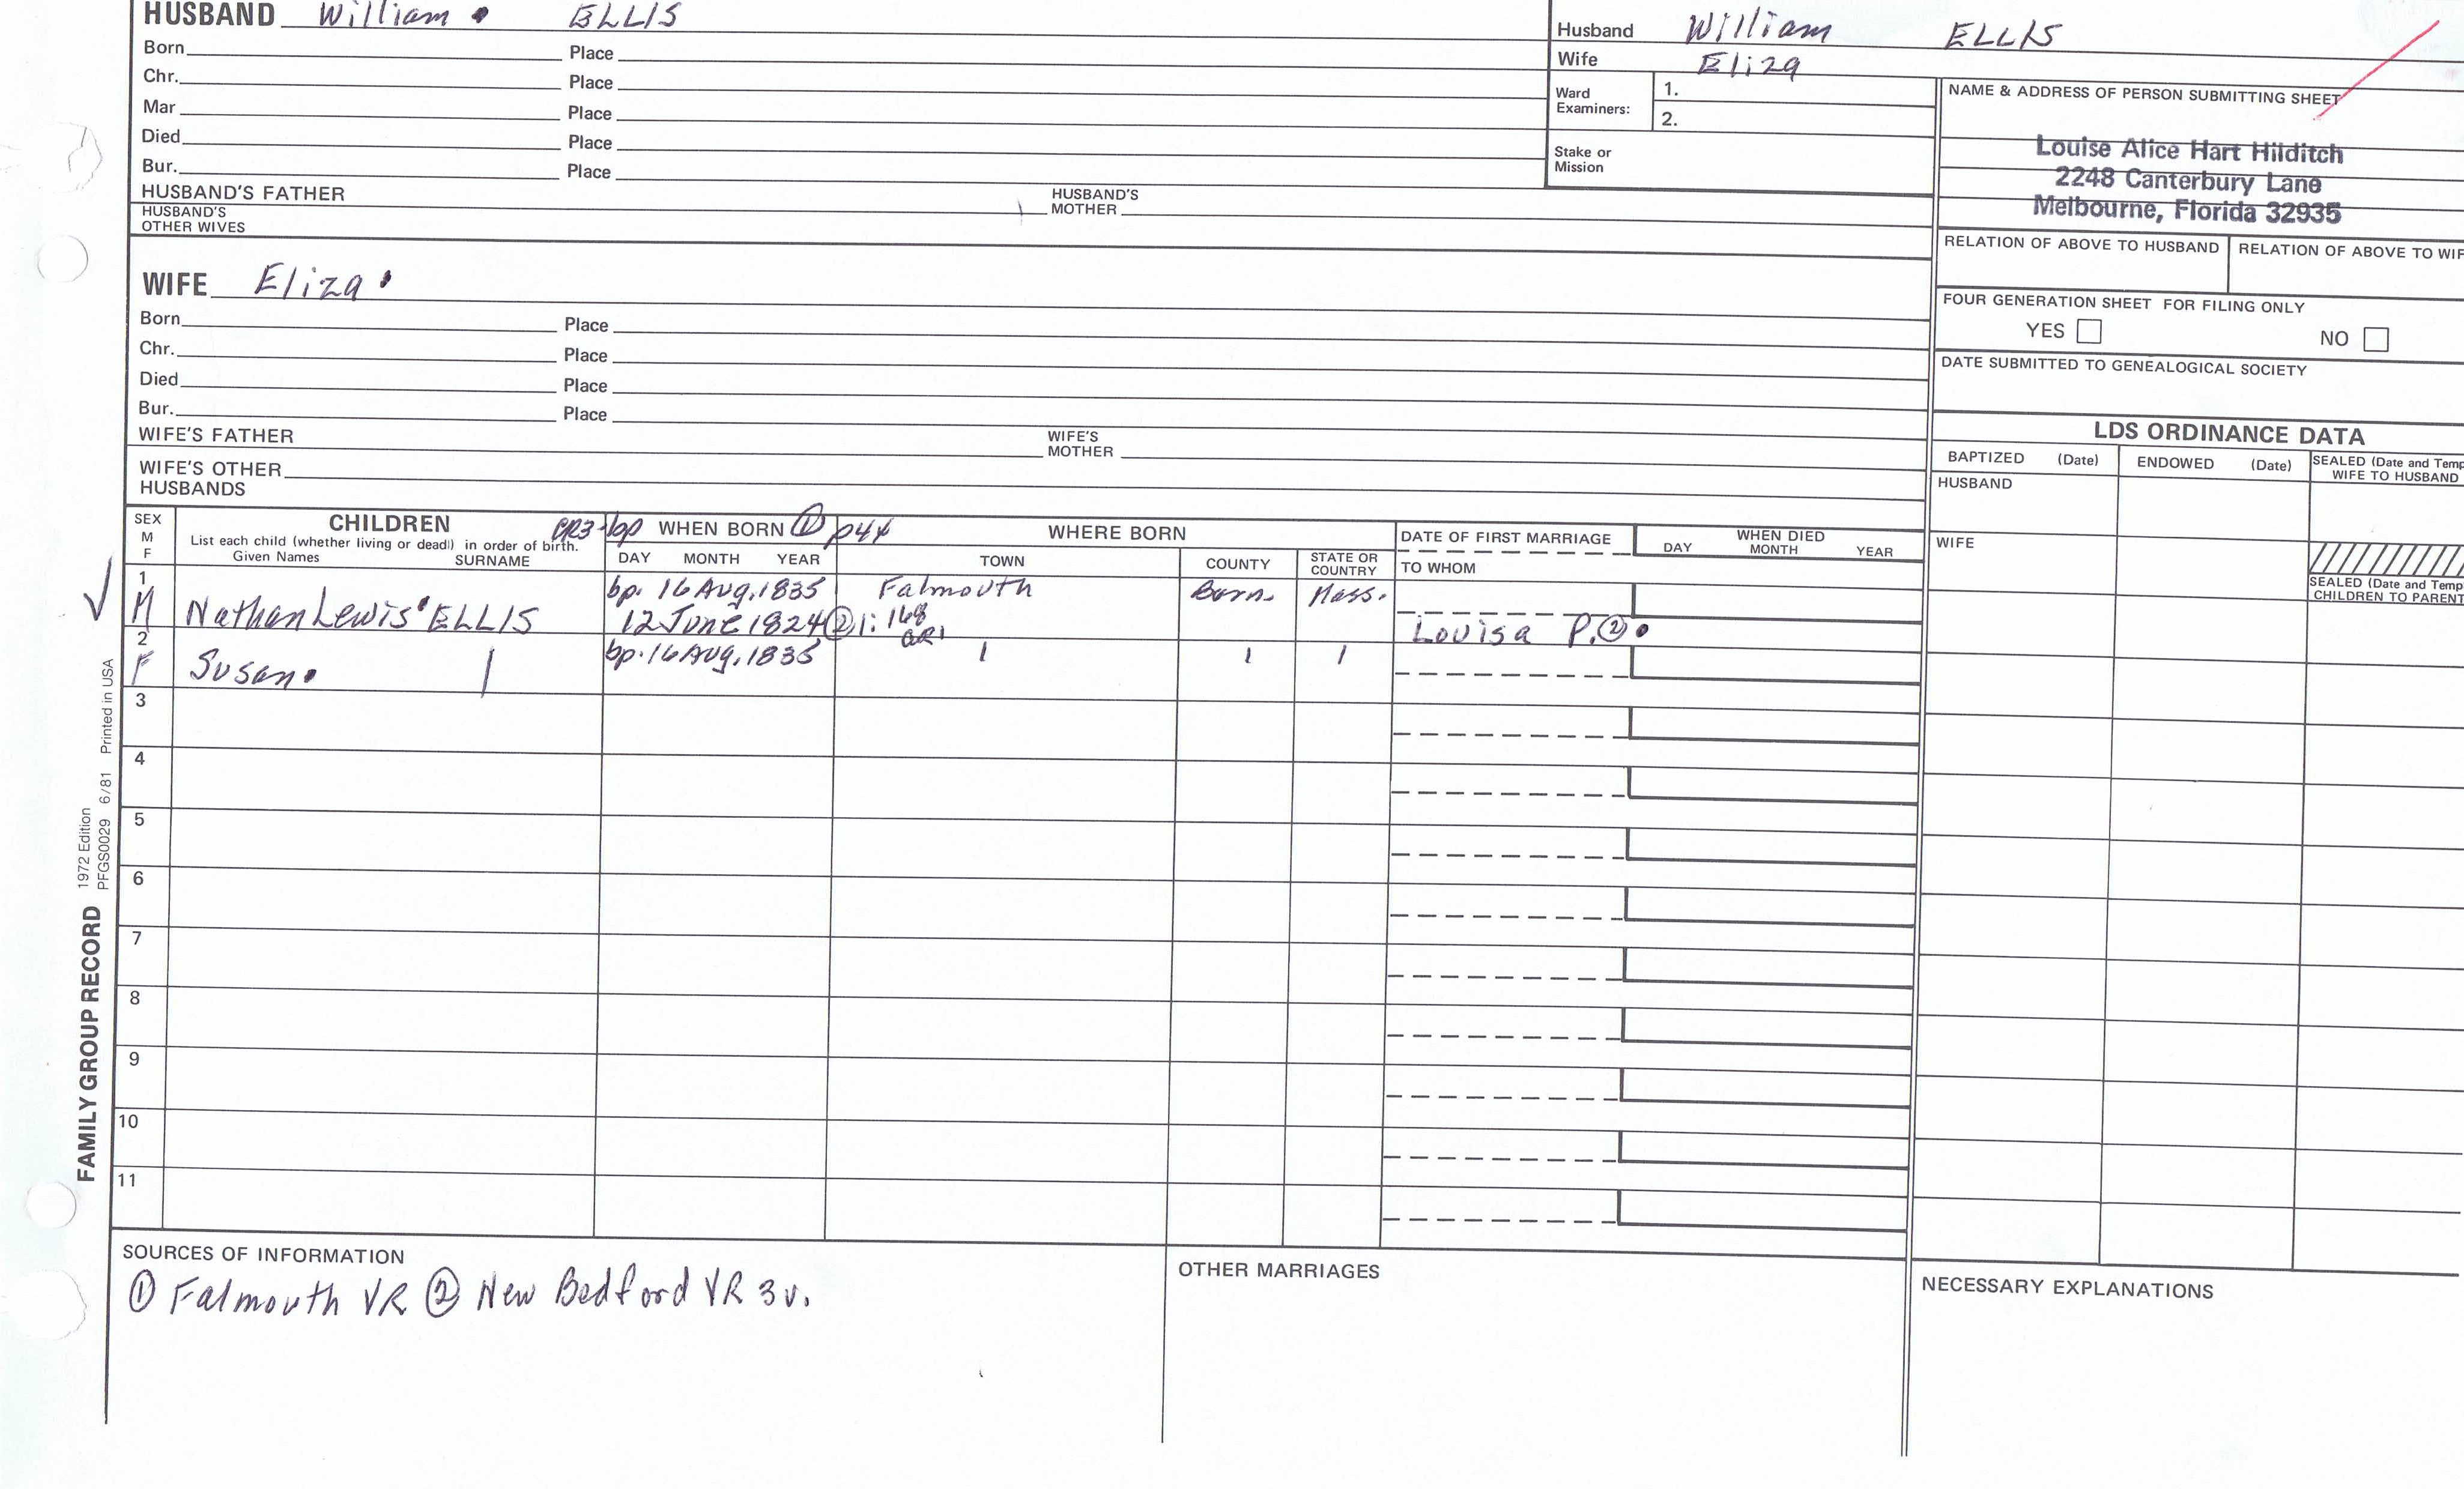 HUSBAND William ELLIS
Born Place
Chr. Place
Mar Place
Died Place
Bur. Place
HUSBAND'S FATHER HUSBAND'S MOTHER
HUSBAND'S OTHER WIVES
Husband William ELLIS
Wife Eliza
Ward Examiners: 1.
2.
Stake or Mission
NAME & ADDRESS OF PERSON SUBMITTING SHEET
Louise Alice Hart Hilditch
2248 Canterbury Lane
Melbourne, Florida 32935
RELATION OF ABOVE TO HUSBAND RELATION OF ABOVE TO WIF
FOUR GENERATION SHEET FOR FILING ONLY
YES NO
DATE SUBMITTED TO GENEALOGICAL SOCIETY
WIFE Eliza
Born Place
Chr. Place
Died Place
Bur. Place
WIFE'S FATHER WIFE'S MOTHER
WIFE'S OTHER HUSBANDS
LDS ORDINANCE DATA
BAPTIZED (Date) ENDOWED (Date) SEALED (Date and Temp
WIFE TO HUSBAND
HUSBAND
WIFE
SEALED (Date and Temp
CHILDREN TO PARENT
SEX M F
CHILDREN
List each child (whether living or dead) in order of birth.
Given Names SURNAME
CR3-bp WHEN BORN ① p44
DAY MONTH YEAR
WHERE BORN
TOWN COUNTY STATE OR COUNTRY
DATE OF FIRST MARRIAGE
TO WHOM
WHEN DIED
DAY MONTH YEAR
1 M Nathan Lewis ELLIS bp. 16 Aug, 1835 Falmouth Barn. Mass.
12 June 1824 ② 1:168 GR1 Louisa P. ②
2 F Susan bp. 16 Aug, 1835
3
4
5
6
7
8
9
10
11
SOURCES OF INFORMATION
① Falmouth VR ② New Bedford VR 3v.
OTHER MARRIAGES
NECESSARY EXPLANATIONS
FAMILY GROUP RECORD
1972 Edition
PFGS0029 6/81 Printed in USA